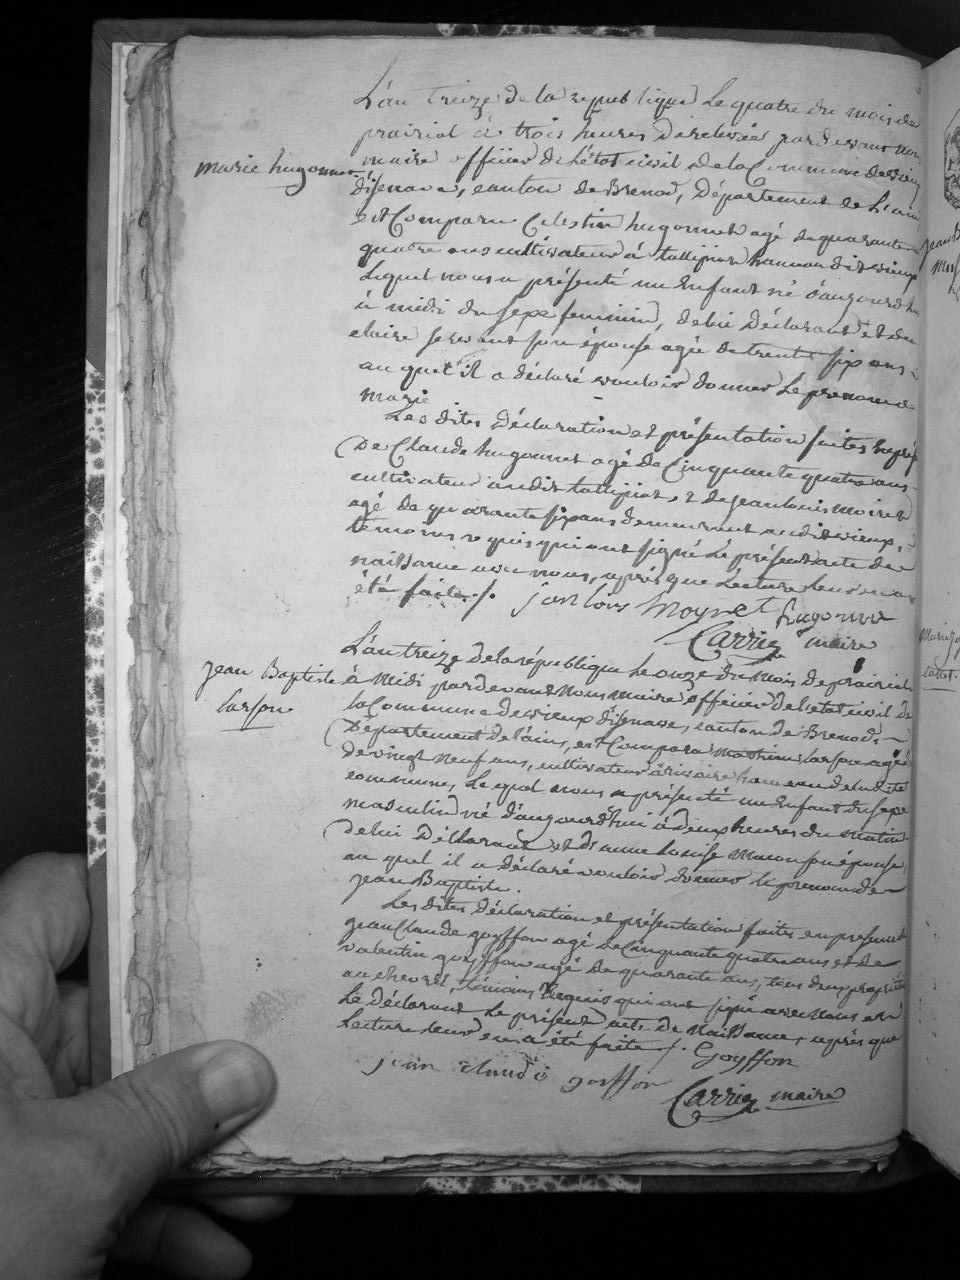 L'an treize de la republique le quatre du mois de
prairial à trois heures de relevée par devant nous
marie hugonnet
maire officier de l'état civil de la Commune de vieux
d'isenave, canton de Brenod, Département de l'ain
est Comparu Celestin hugonnet agé de quarante
quatre ans cultivateur à hameau dudit vieux
Lequel nous a présenté un Enfant né d'aujourd'hu
à midi du sexe feminin, de lui Déclarant et de
claire servant son épouse agée de trente six ans
au quel il a déclaré vouloir donner le prenom de
marie
Les dites Déclaration et présentation faites
De Claude hugonnet agé de Cinquante quatre ans
cultivateur audit et de jean louis moiret
agé de quarante six ans demeurant audit vieux,
temoins requis qui ont signé le présent acte de
naissance avec nous, après que Lecture leur en a
été faite ./. jan lois Moynet hugonnet
Carrier maire
L'an treize de la république le onze du mois de prairial
jean Baptiste
à midi par devant nous maire officier de l'état civil de
larson
la Commune de vieux d'isenave, canton de Brenod,
Département de l'ain, est Comparu larson agé
de vingt neuf ans, cultivateur à rivoire hameau de la dite
commune, Lequel nous a présenté un Enfant du sexe
masculin né d'aujourd'hui à deux heures du matin
de lui Déclarant et d'anne louise macon son épouse,
au quel il a déclaré vouloir donner le prenom de
jean Baptiste.
Les dites déclaration et présentation faites en presence
jean Claude goyffon agé de Cinquante quatre ans et de
valentin goyffon agé de quarante ans, tous deux
au temoins Requis qui ont signé avec nous et
le déclarant Le présent acte de Naissance, après que
Lecture leur en a été faite ./. Goyffon
jean claude goyffon
Carrier maire